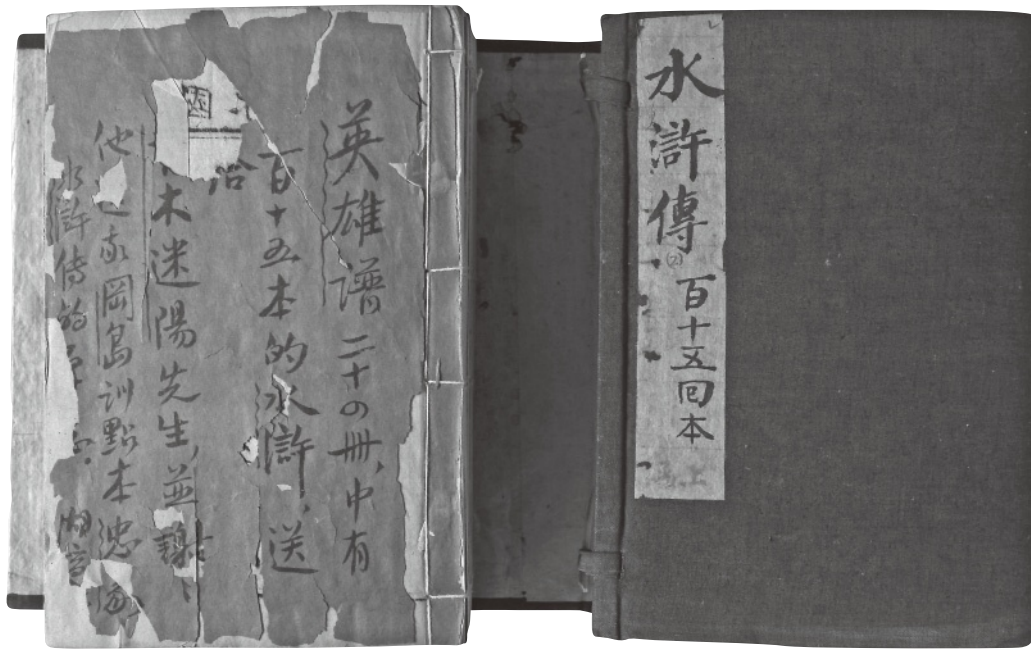 水滸傳
(2)
百十五回本
英雄譜二十四冊,中有
百十五本的水滸,送
給
木迷陽先生,並謝
他 我岡島訓點本忠義
水滸傳的
胡適